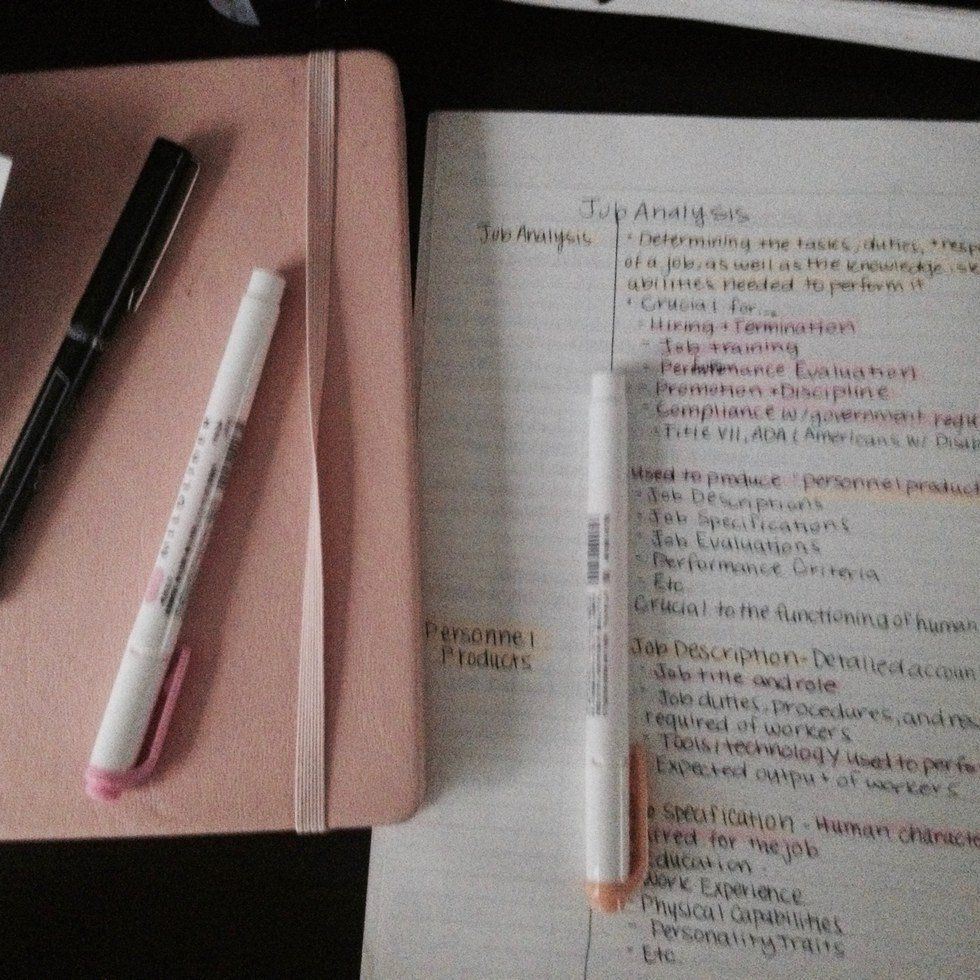 Job Analysis
Job Analysis
· Determining the tasks, duties, + resp
of a job, as well as the knowledge, sk
abilities needed to perform it
· Crucial for...
- Hiring + Termination
- Job training
- Performance Evaluation
- Promotion + Discipline
- Compliance w/ government regu
- Title VII, ADA (Americans w/ Disab
Used to produce "personnel product
- Job Descriptions
- Job Specifications
- Job Evaluations
- Performance Criteria
- Etc.
Crucial to the functioning of human
Personnel
Products
Job Description - Detailed accoun
- Job title and role
- Job duties, procedures, and res
required of workers
- Tools/technology used to perfo
- Expected output of workers
specification - Human characte
ired for the job
Education
Work Experience
- Physical Capabilities
- Personality Traits
- Etc.